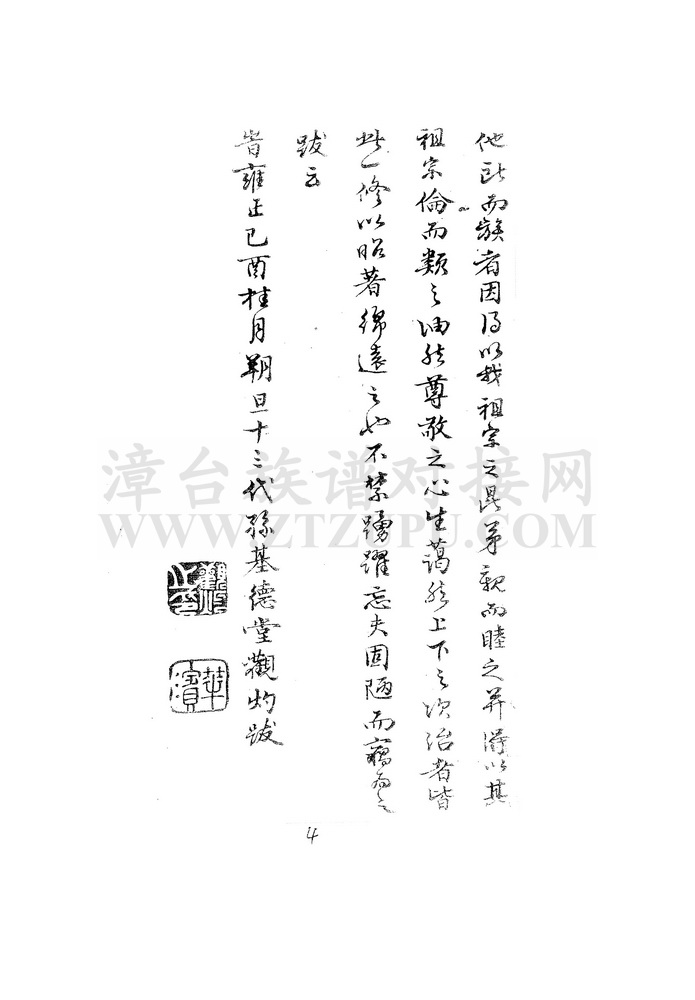 他跂而族者因得以我祖宗之昆弟親而睦之并得以其
祖宗倫而類之油然尊敬之心生藹然上下之次洽者皆
此一修以昭著綿遠之也不禁踴躍忘夫固陋而竊為之
跋云
旹雍正己酉桂月朔旦十三代孫基德堂觀灼跋
華濱
漳台族谱对接网
WWW.ZTZUPU.COM
4